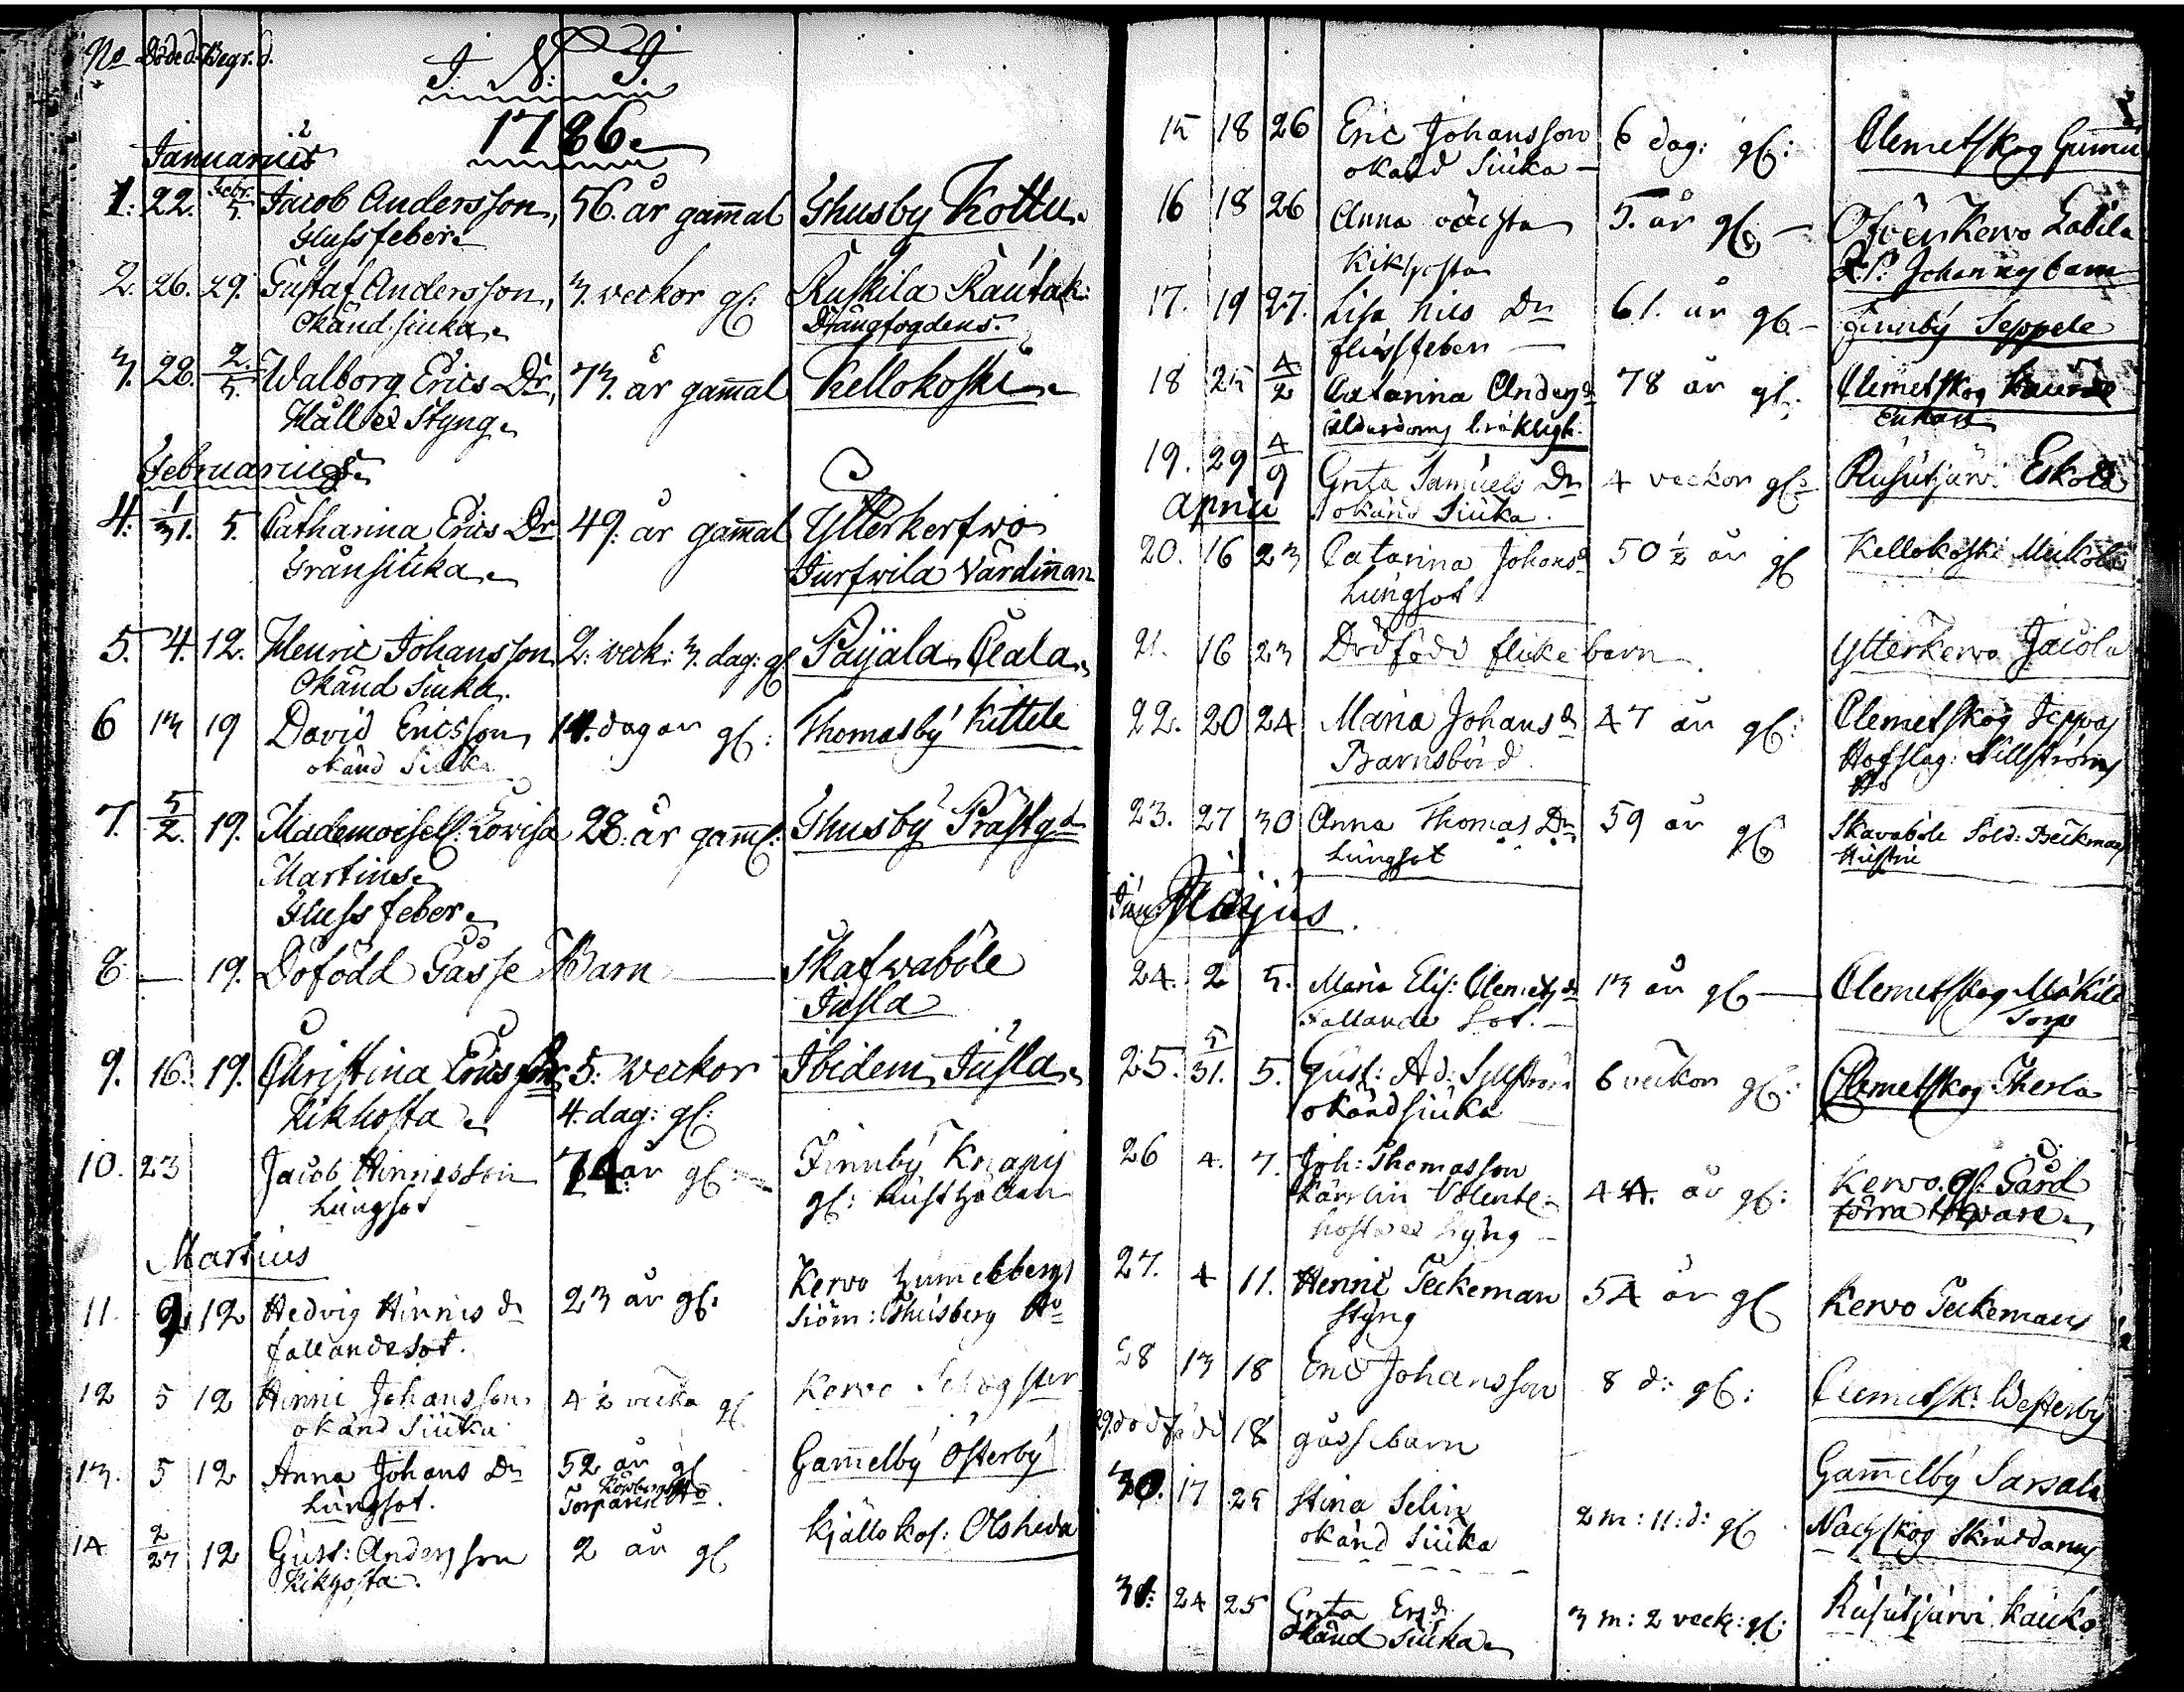 No Döde d. Begr. d.
I. N. I.
1786.
Januarius
1. 22. Febr. 5. Jacob Andersson, 56. år gam̄al Thusby Kottu.
Flussfeber.
2. 26. 29. Gustaf Andersson, 3. veckor gl: Ruskila Rautak:
Okänd siuka. Drängfogdens.
3. 28. 2./5. Walborg Erics Dr, 73. år gam̄al Kellokoski
Håll ock Styng.
Februarius.
4. 1/31. 5. Catharina Erics Dr 49: år gam̄al Ytterkerfwo
Fransiuka. Jurfvila Värdin̄an
5. 4. 12. Henric Johansson 2: veck: 3. dag: gl Paijala, Ceala.
Okänd Siuka.
6 13 19 David Ericsson 14. dagar gl: Thomasby Kittele
okänd Siuka
7. 5/2. 19. Mademoisell: Lovisa 28. år gam̄l: Thusby Prästgd
Martins.
Flussfeber.
8. — 19. Döfödd Gåsse Barn — Skafwaböle
Jusla
9. 16. 19. Christina Erics dr 5: weckor Ibidem, Jusla.
Kikhosta 4. dag: gl:
10. 23 Jacob Hinricsson 74 år gl: Finnby Knapis
Lungsot gl: Rusthållan
Martius
11. 9. 12 Hedvig Hinrics dr 23 år gl: Kervo
fallandesot. Siöm: Thusberg Ho
12 5 12 Hinric Johansson 4½ vecka gl Kervo
okänd Siuka
13. 5 12 Anna Johans Dr 52 år gl Gam̄elby Österby
Lungsot. Torparen Ho
14 2/27 12 Gust: Andersson 2 år gl Kjällokos: Olsheda
Kikhosta.
15 18 26 Eric Johansson 6 dag: gl: Clemetskog
okänd Siuka —
16 18 26 Anna 5. år gl — Ofvenkervo Labila
Kikhosta Johans barn
17. 19 27. Lisa Nils Dr 61. år gl — Finnby Seppele
flussfeber —
18 25 4/2 Catarina Anders dr 78 år gl: Clemetskog
Ålderdoms bräkligh. Enkan
19. 29 4/9 Greta Samuels Dr 4 veckor gl: Rusutjärvi Eskola
okänd Siuka.
April
20. 16 23 Catarina Johans dr 50½ år gl Kellokoski
Lungsot
21. 16 23 Dödfödd flickebarn Ytterkervo Jacola
22. 20 24 Maria Johans dr 47 år gl: Clemetskog Seppas
Barnsbörd. Hofslag: Sillströms
Ho
23. 27 30 Anna Thomas Dr 59 år gl Skavaböle Sold: Beckmans
Lungsot Hustru
Majus.
24. 2 5. Maria Elis: Clemets dr 13 år gl — Clemetskog Mäkilä
Fallande Sot. — Torp
25. 5/31. 5. Gust: Ad: Sillström 6 veckor gl: Clemetskog Therla
okänd siuka
26 4. 7. Joh: Thomasson 44. år gl: Kervo gl: Gård
förra
27. 4 11. Henric Teckeman 54 år gl Kervo Teckemans
Styng
28 13 18 Eric Johansson 8 d: gl: Clemetsk: Westerby
29. dödfödd 18 gåssebarn Gam̄elby Sarsala
30. 17 25 Stina Selin 2 m: 11: d: gl Nackskog
okänd Siuka
31: 24 25 Greta Ers dr 3 m: 2 veck: gl: Rusutjärvi Kauko
okänd siuka